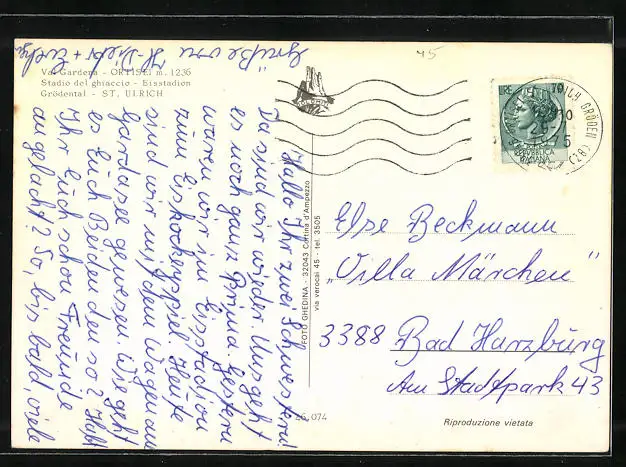 Val Gardena - ORTISEI m. 1236
Stadio del ghiaccio - Eisstadion
Grödental - ST. ULRICH
Hallo Ihr zwei Schwestern!
Da sind wir wieder. Uns geht
es noch ganz Prima. Gestern
waren wir im Eisstadion
zum Eishockeyspiel. Heute
sind wir mit dem Wagen am
Gardasee gewesen. Wie geht
es Euch Beiden denn so? Habt
Ihr Euch schon Freunde
angelacht? So, bis bald, viele
Grüße von
FOTO GHEDINA - 32043 Cortina d'Ampezzo
via verocai 45 - tel. 3505
45
LIRE
REPUBBLICA
ITALIANA
GRÖDEN (BZ)
Else Beckmann
"Villa Märchen"
3388 Bad Harzburg
Am Stadtpark 43
26.074
Riproduzione vietata